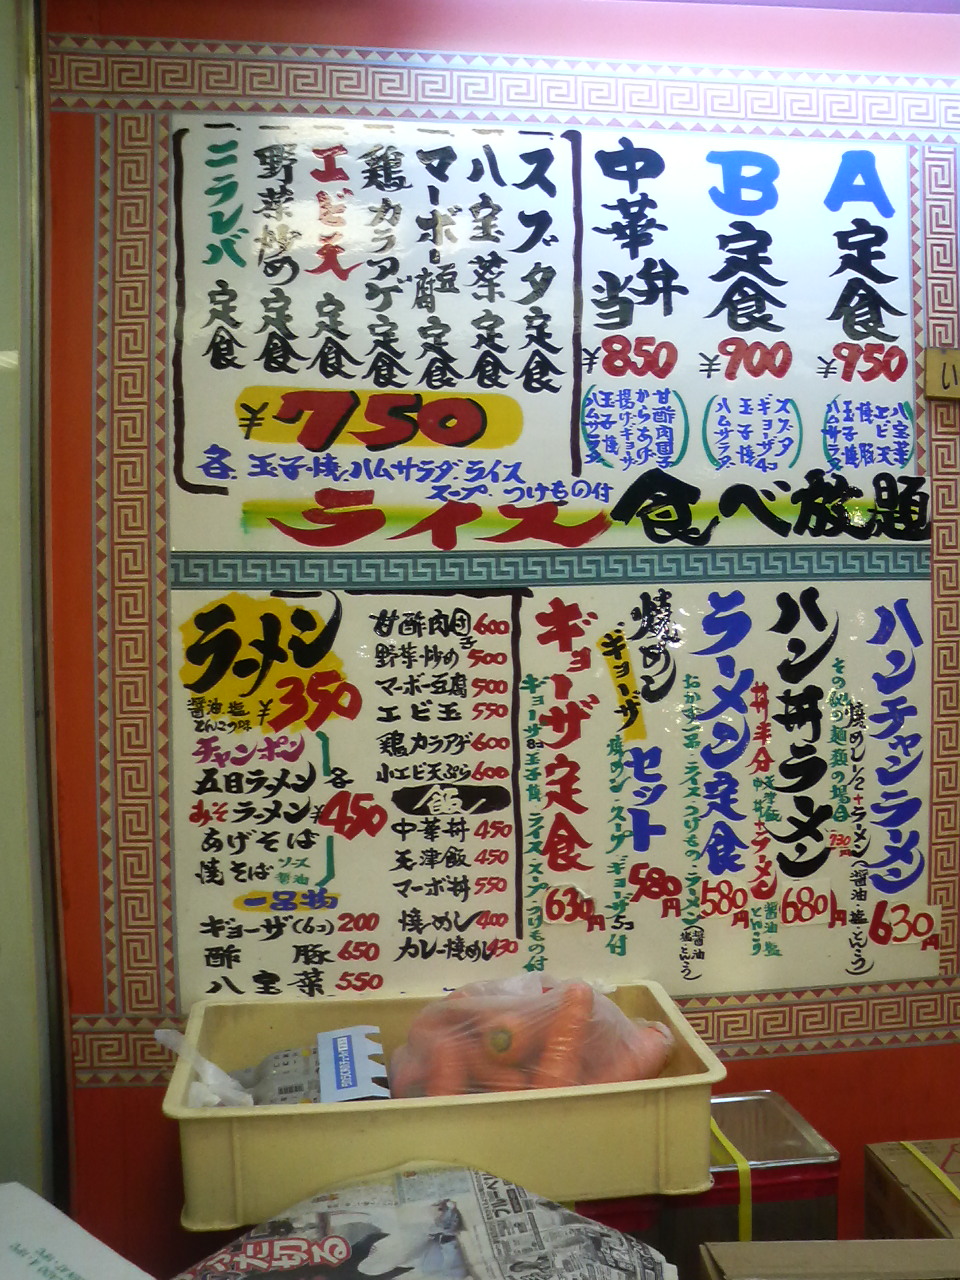 A定食
¥950
八宝菜
エビ天
酢豚
玉子焼
ハムサラダ
B定食
¥900
スブタ
ギョーザ4コ
玉子焼
ハムサラダ
中華弁当
¥850
甘酢肉団子
からあげ
揚げギョーザ
玉子焼
ハムサラダ
スブタ定食
八宝菜定食
マーボー豆腐定食
鶏カラアゲ定食
エビ天定食
野菜炒め定食
ニラレバ定食
¥750
各 玉子焼.ハムサラダ.ライス
スープ.つけもの付
ライス食べ放題
ハンチャンラーメン
焼めし1/2+ラーメン(醤油・塩・とんこつ)
630円
その他の麺類の場合
730円
ハン丼ラーメン
丼半分+ラーメン
天津飯
中華丼
醤油 塩
とんこつ
680円
ラーメン定食
おかず一品・ライス・つけもの・ラーメン(醤油 塩 とんこつ)
580円
焼めし
ギョーザ セット
焼めし・スープ・ギョーザ5コ付
580円
ギョーザ定食
ギョーザ8コ 玉子焼・ライス・スープ・つけもの付
630円
ラーメン
醤油 塩
とんこつ味
¥350
チャンポン
五目ラーメン
みそラーメン
あげそば
焼そば ソース 醤油
各
¥450
一品物
ギョーザ(6コ) 200
酢豚 650
八宝菜 550
甘酢肉団子 600
野菜炒め 500
マーボー豆腐 500
エビ玉 550
鶏カラアゲ 600
小エビ天ぷら 600
飯
中華丼 450
天津飯 450
マーボ丼 550
焼めし 400
カレー焼めし 430
い